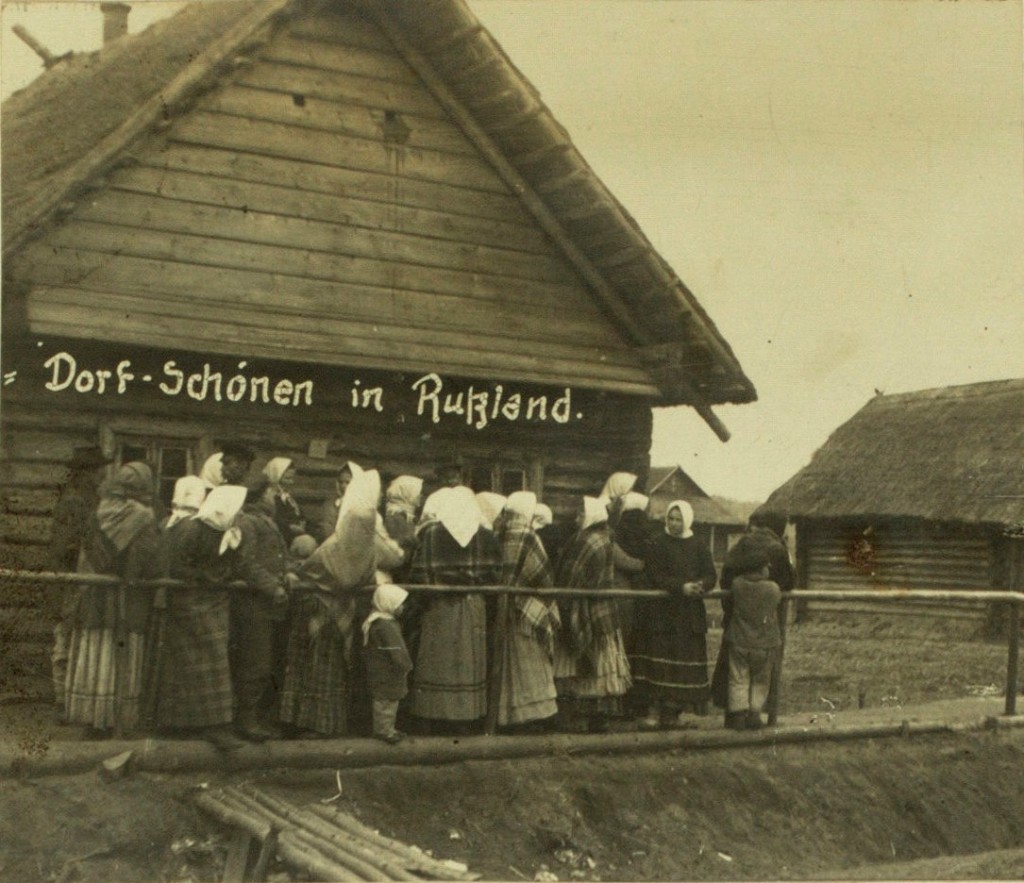 = Dorf-Schönen in Rußland.